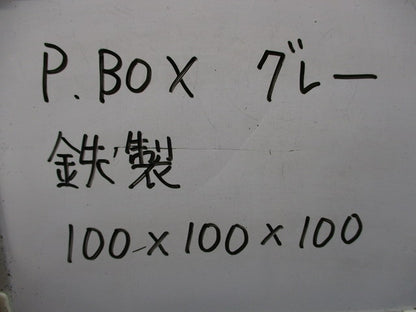 P.BOX グレー
鉄製
100×100×100